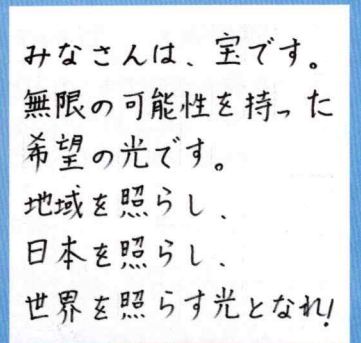 みなさんは、宝です。
無限の可能性を持った
希望の光です。
地域を照らし、
日本を照らし、
世界を照らす光となれ!